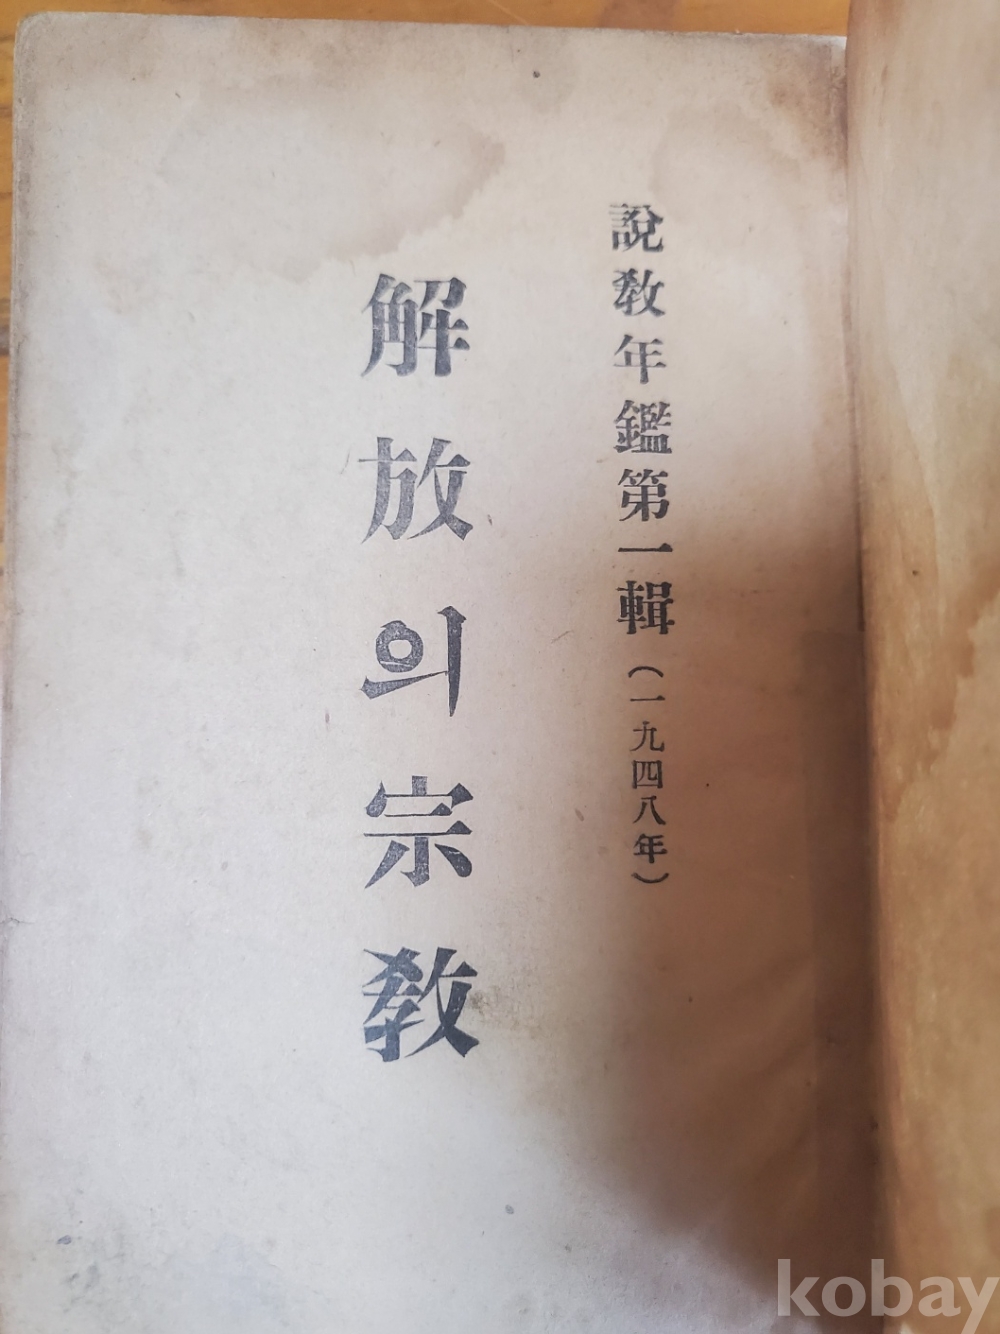 說敎年鑑第一輯(一九四八年)
解放의宗敎
kobay